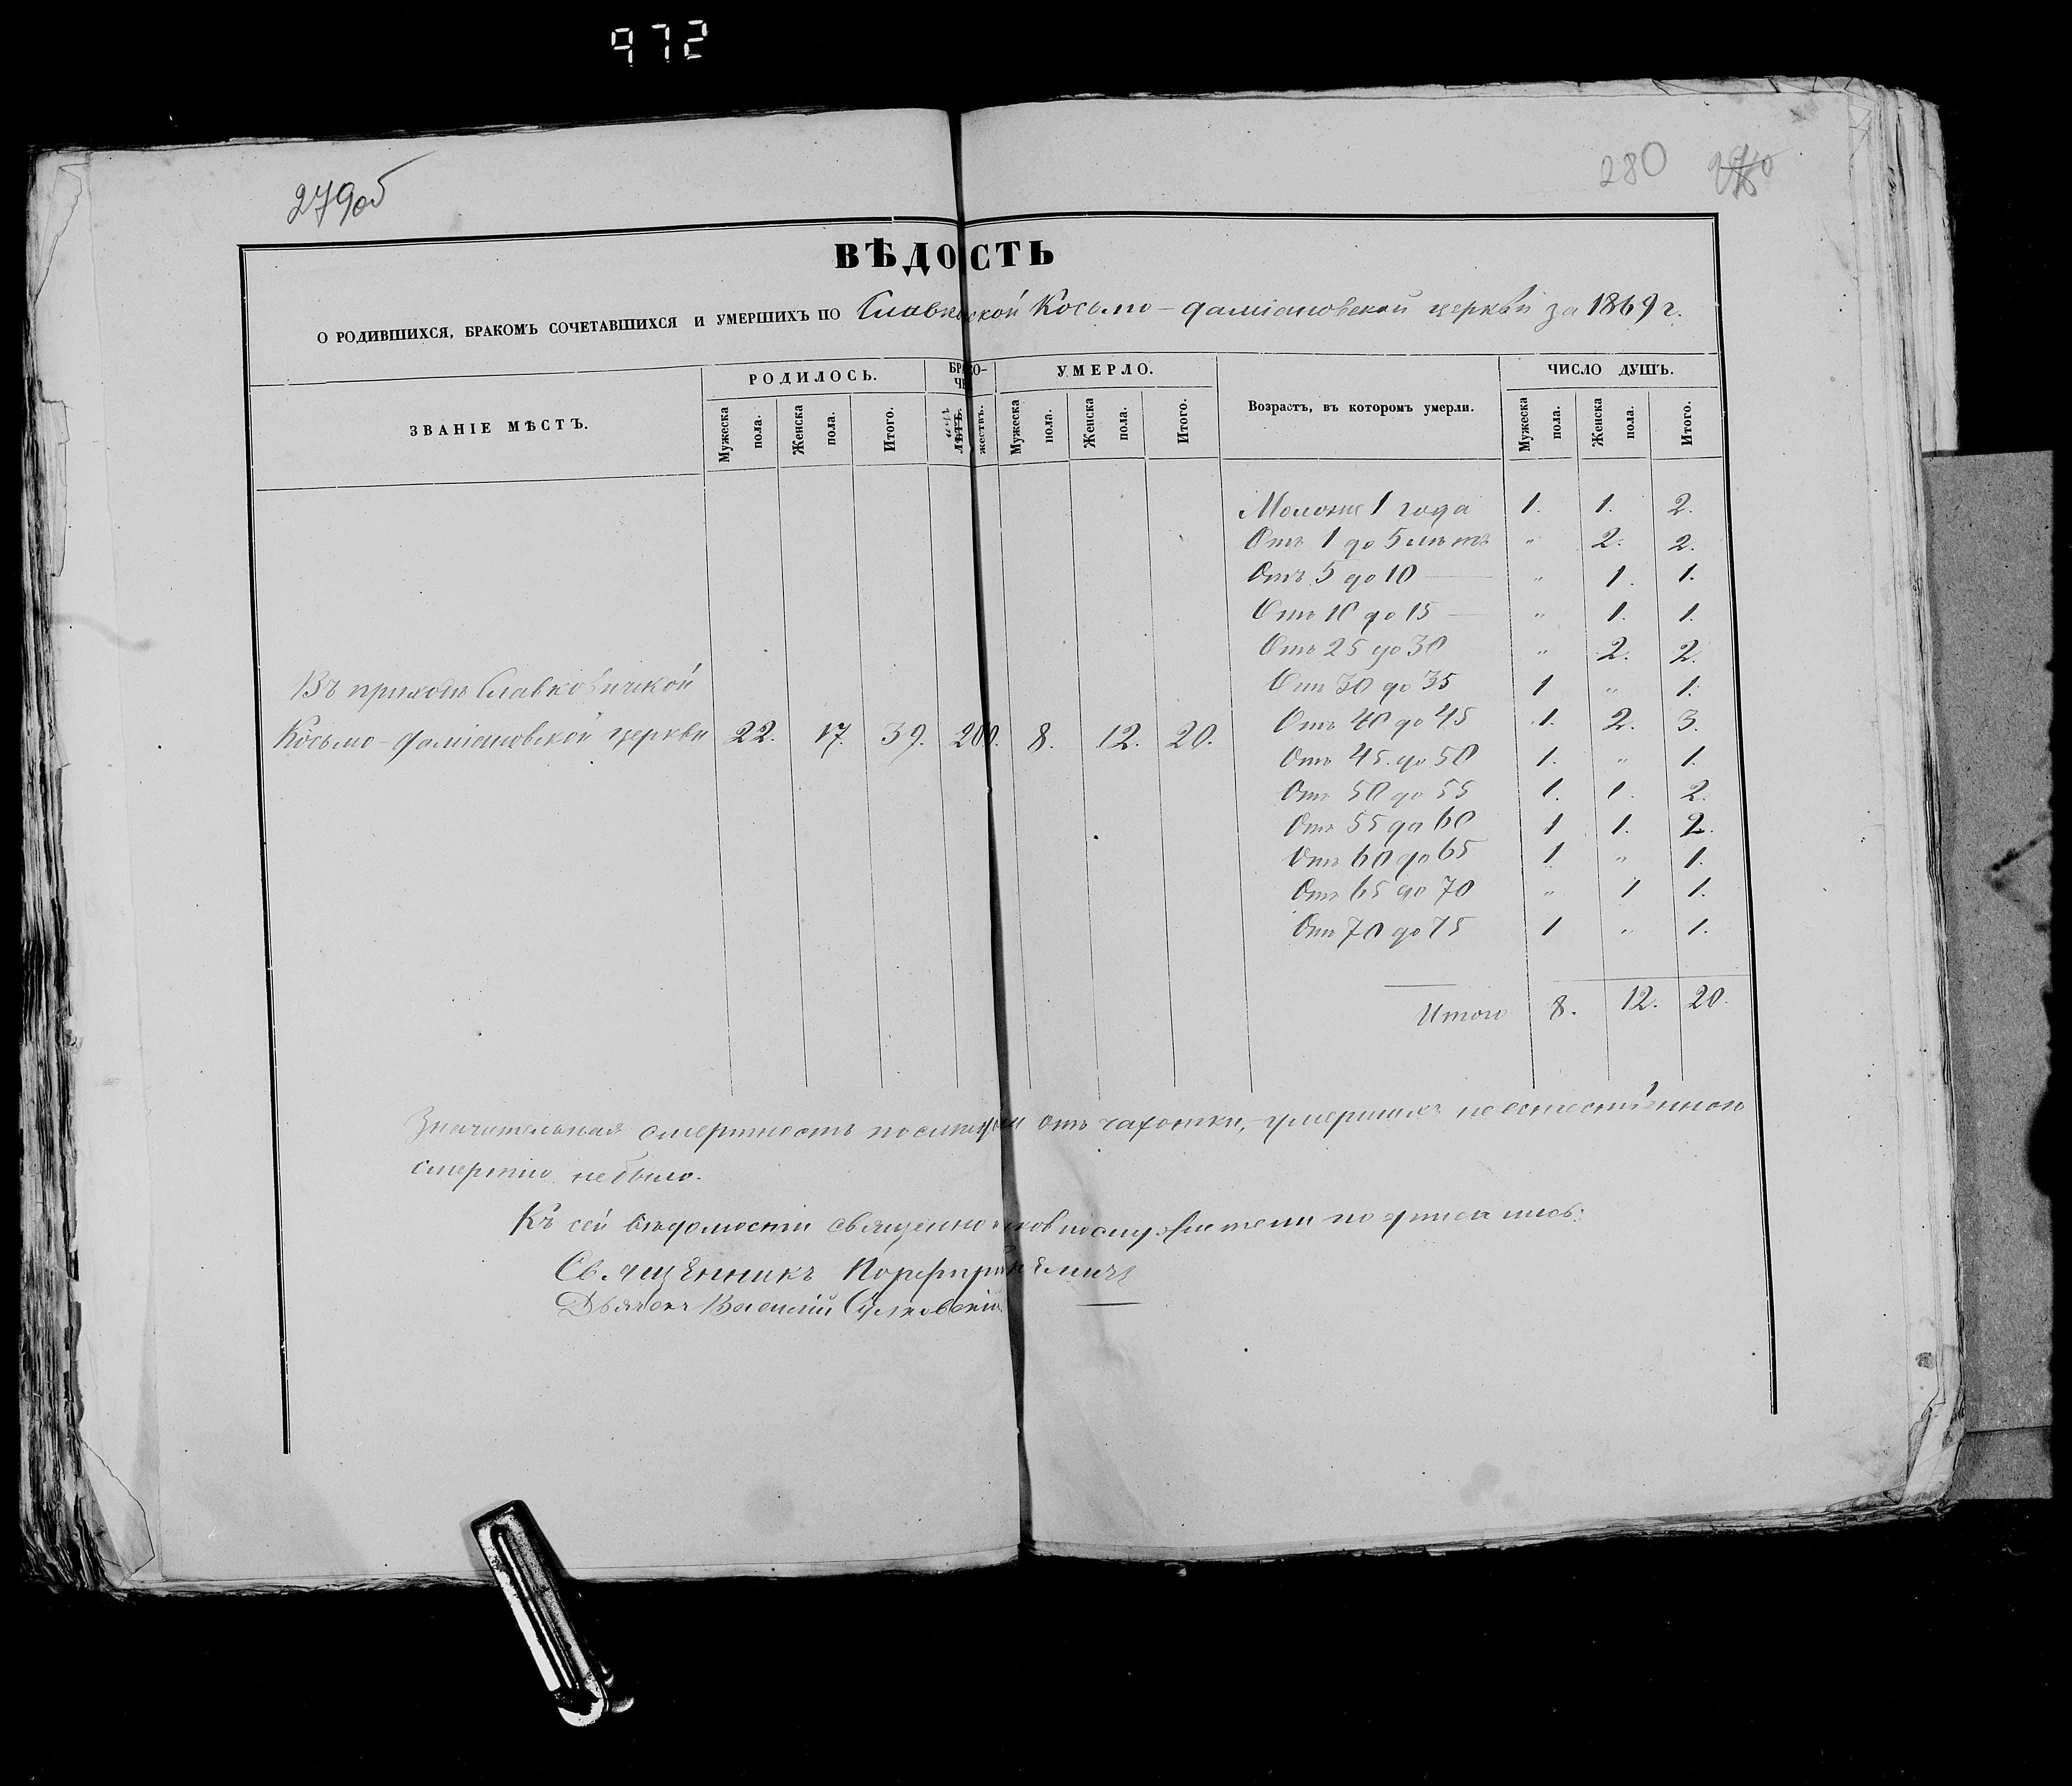 972
279об
280
ВѢДОСТЬ
О РОДИВШИХСЯ, БРАКОМЪ СОЧЕТАВШИХСЯ И УМЕРШИХЪ ПО Косьмо-даміановской церкви за 1869 г.
ЗВАНІЕ МѢСТЪ.
РОДИЛОСЬ.
УМЕРЛО.
Возрастъ, въ которомъ умерли.
ЧИСЛО ДУШЪ.
Мужеска пола.
Женска пола.
Итого.
Мужеска пола.
Женска пола.
Итого.
Мужеска пола.
Женска пола.
Итого.
Моложе 1 года 1. 1. 2.
Отъ 1 до 5 лѣтъ " 2. 2.
Отъ 5 до 10 — " 1. 1.
Отъ 10 до 15 — " 1. 1.
Отъ 25 до 30 " 2. 2.
Отъ 30 до 35 1 " 1.
Въ приходѣ Славковичской
Косьмо-даміановской церкви 22. 17. 39. 8. 12. 20.
Отъ 40 до 45 1. 2. 3.
Отъ 45 до 50 1. " 1.
Отъ 50 до 55 1. 1. 2.
Отъ 55 до 60 1 1. 2.
Отъ 60 до 65 1 " 1.
Отъ 65 до 70 " 1 1.
Отъ 70 до 75 1 " 1.
Итого 8. 12. 20.
Значительная смертность отъ чахотки, - умершихъ неестественною
смертію небыло.
Къ сей вѣдомости подписались:
Священникъ
Дьячекъ Василій